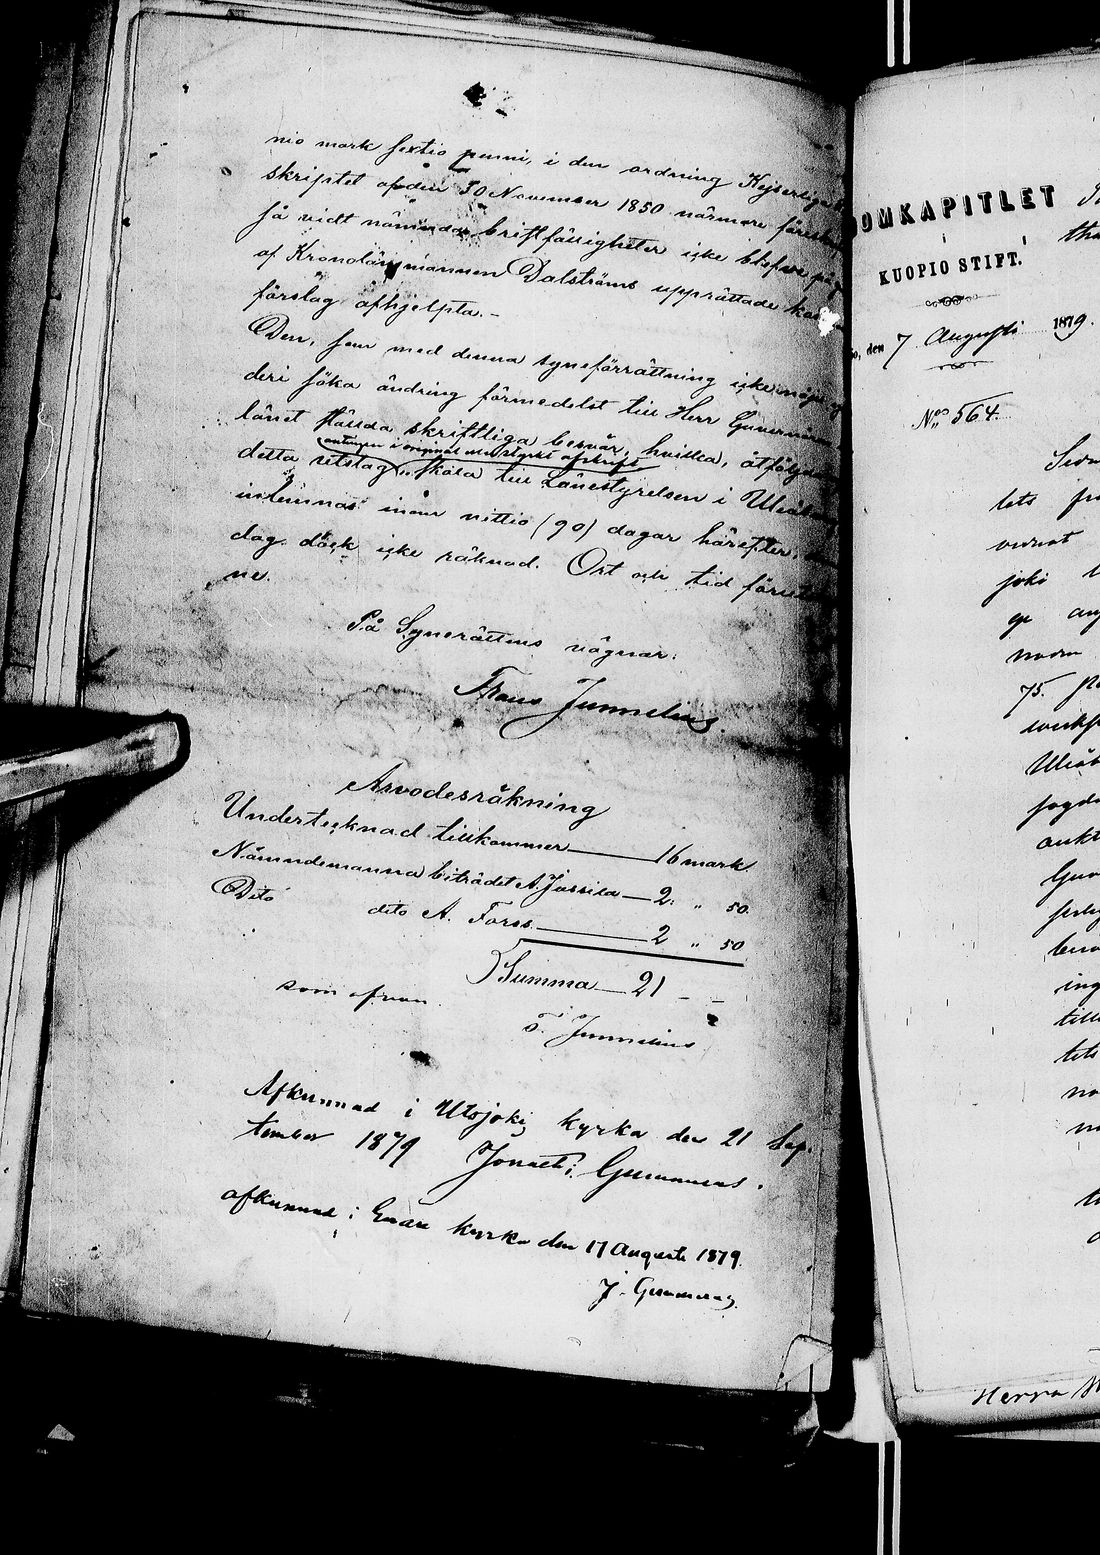 nio mark sextio penni, i den ordning Kejserliga
skriptet af den 30 November 1850 närmare
så vidt nämnda bristfälligheter icke blefve
af Kronolänsmannen Dalströms upprättade
förslag afhjelpta.-
Den, som med denna syneförrättning icke nöjes
deri söka ändring förmedelst till Herr Guvernören
länet stälda skriftliga besvär, hvilka, åtföljda
antingen i original eller styrkt afskrift
detta utslag, skola till Länestyrelsen i Uleåborg
inlemnas inom nittio (90) dagar härefter,
dag dock icke räknad. Ort och tid förut
ne.
På Synerättens vägnar:
Frans Junnelius.
Arvodesräkning
Undertecknad tillkommer 16 mark.
Nämndemanna biträdet A. Jussila 2. " 50.
Dito dito A. Forss 2 " 50
Summa 21 - -
som ofvan.
F. Junnelius
Afkunnad i Utsjoki kyrka den 21 Sep-
tember 1879 Gummerus.
afkunnad i Enare kyrka den 17 Augusti 1879.
J. Gummerus.
DOMKAPITLET
I
KUOPIO STIFT.
den 7 Augusti 1879.
No 564.
tets
joki
75.
Uleåb
ing
till
tets
Herra